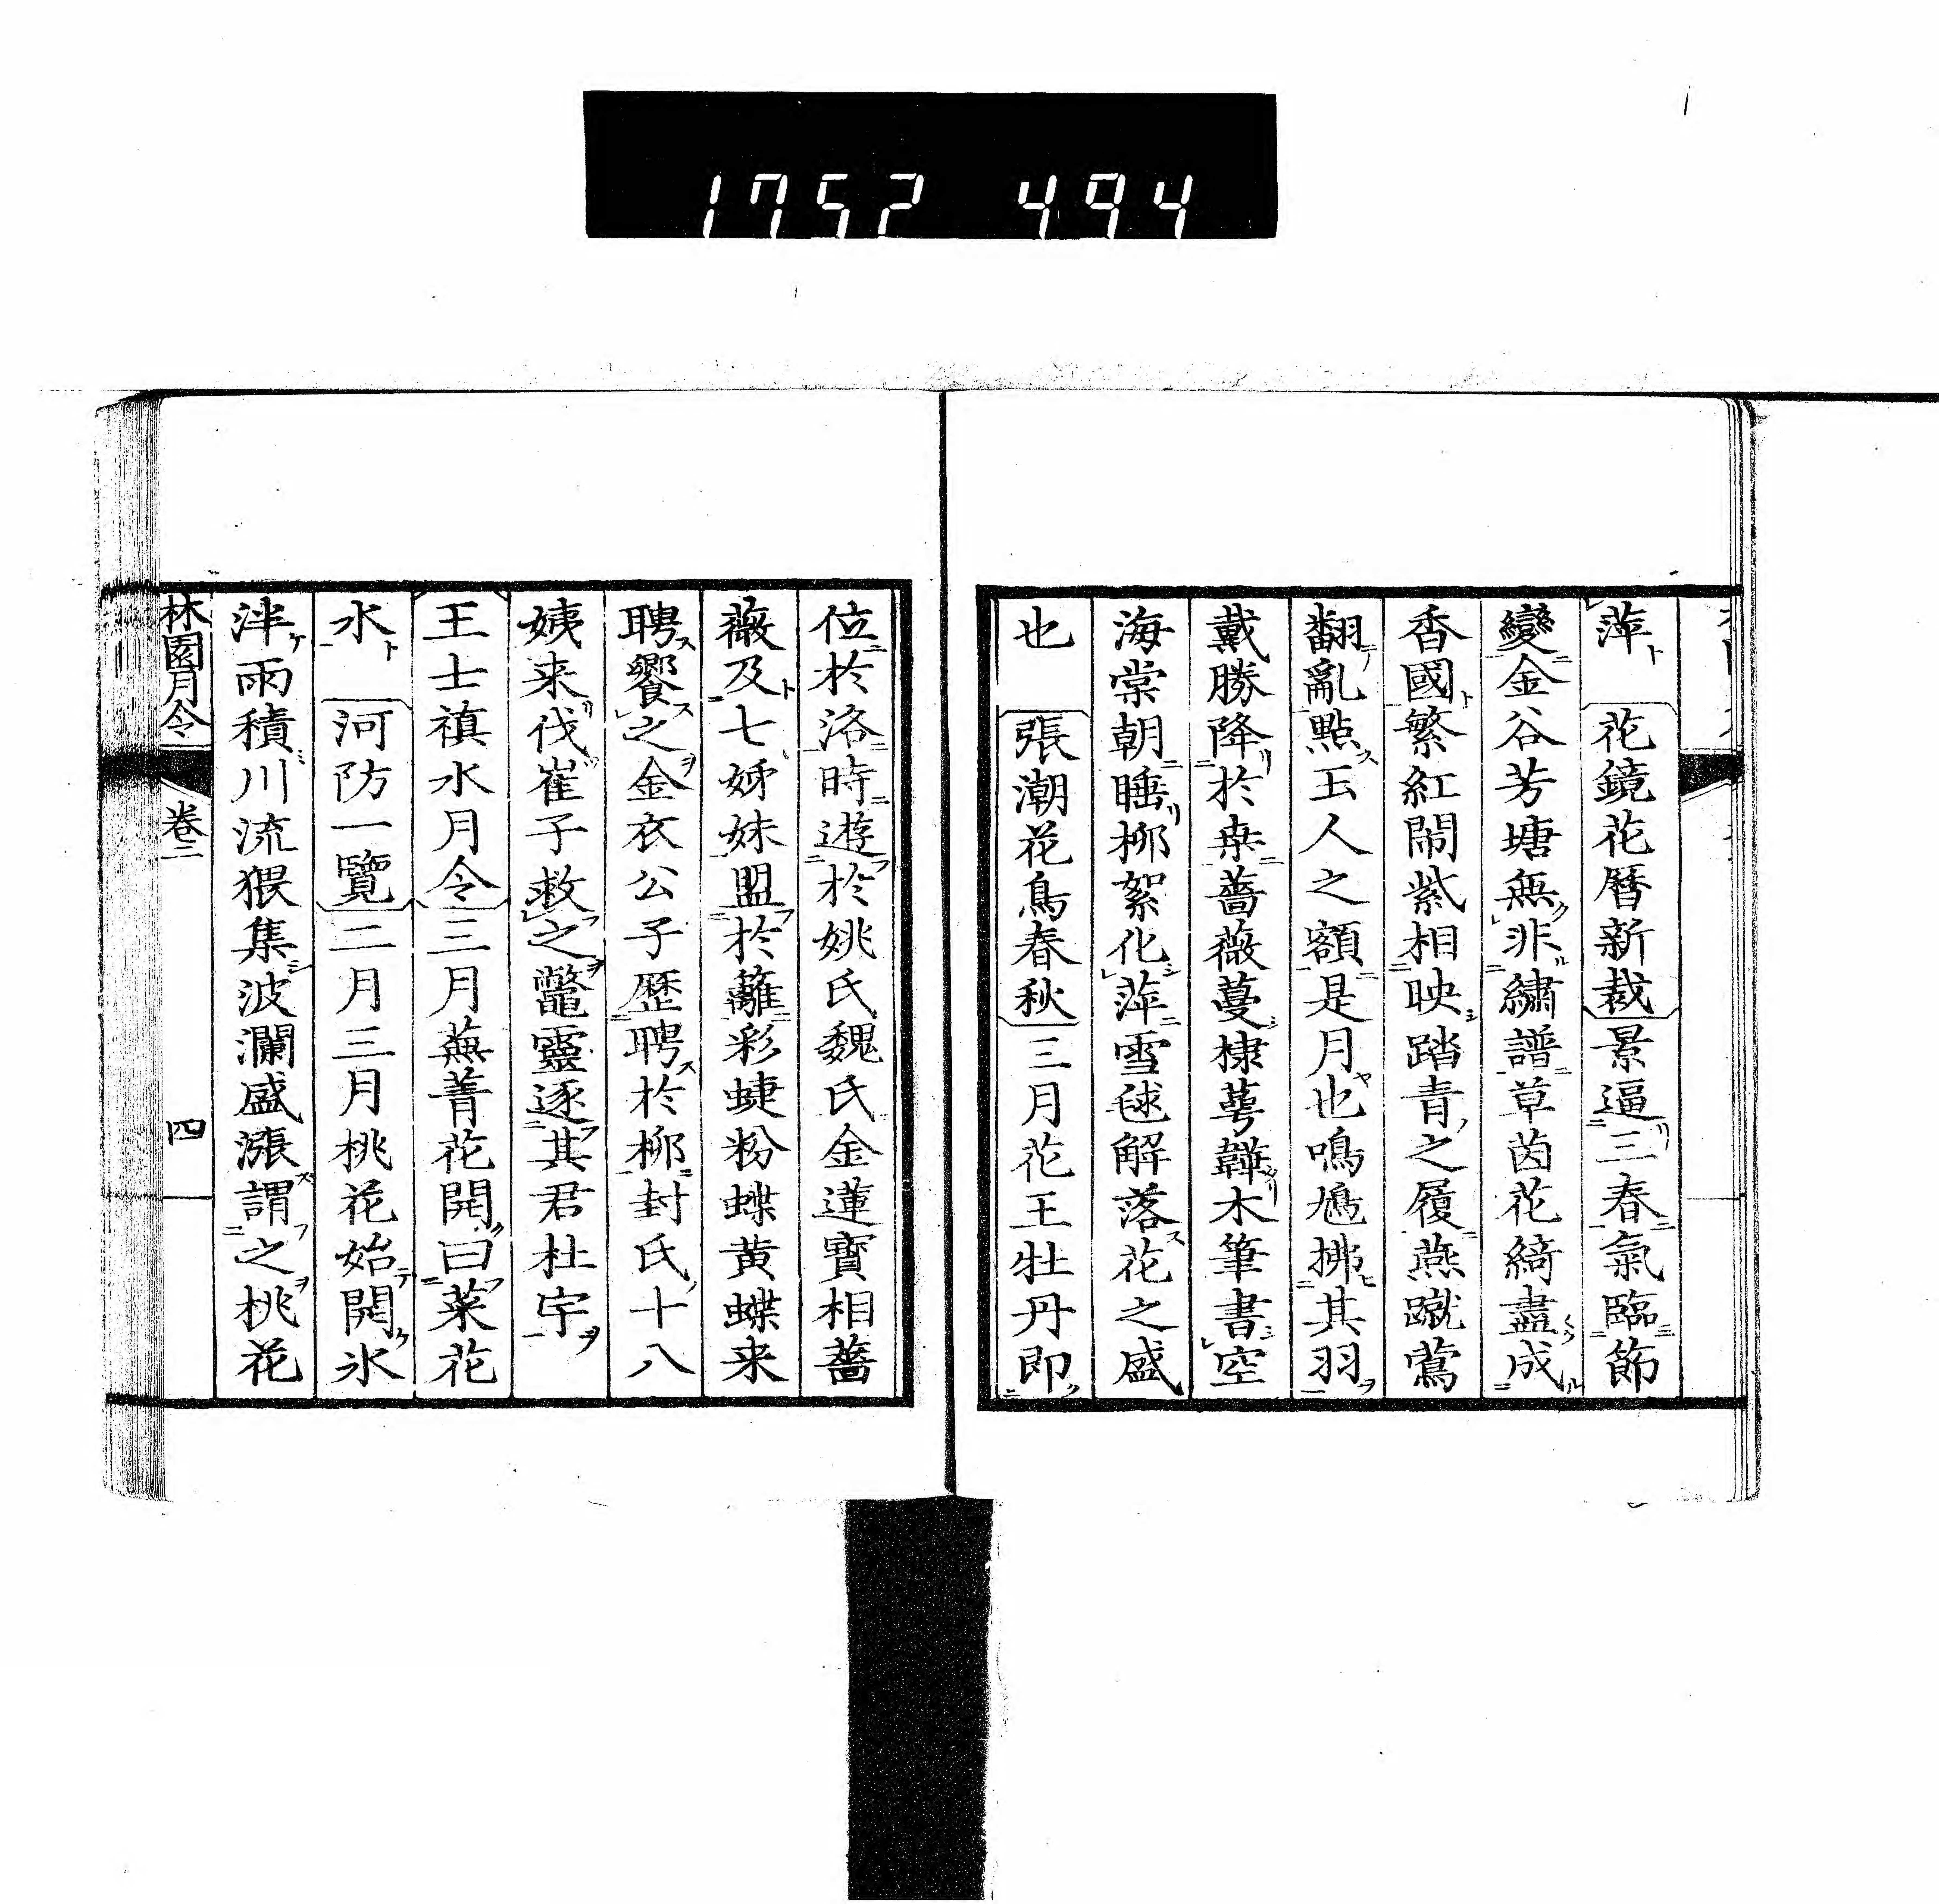 1752 494
萍 花鏡花曆新裁景逼三春氣臨節
變金谷芳塘無非繡譜草茵花綺盡成
香國繁紅閙紫相映踏青之履燕蹴鶯
翻亂點玉人之額是月也鳴鳩拂其羽
戴勝降於桒薔薇蔓棣萼韡木筆書空
海棠朝睡柳絮化萍雪毬解落花之盛
也 張潮花鳥春秋三月花王牡丹即
位於洛時遊於姚氏魏氏金蓮寳相薔
薇及七姊妹盟於籬彩蜨粉蝶黄蝶来
聘饗之金衣公子歷聘於柳封氏十八
姨来伐崔子救之鼈靈逐其君杜宇
王士禛水月令三月蕪菁花開曰菜花
水 河防一覽二月三月桃花始開氷
泮雨積川流猥集波瀾盛漲謂之桃花
林園月令
卷二
四